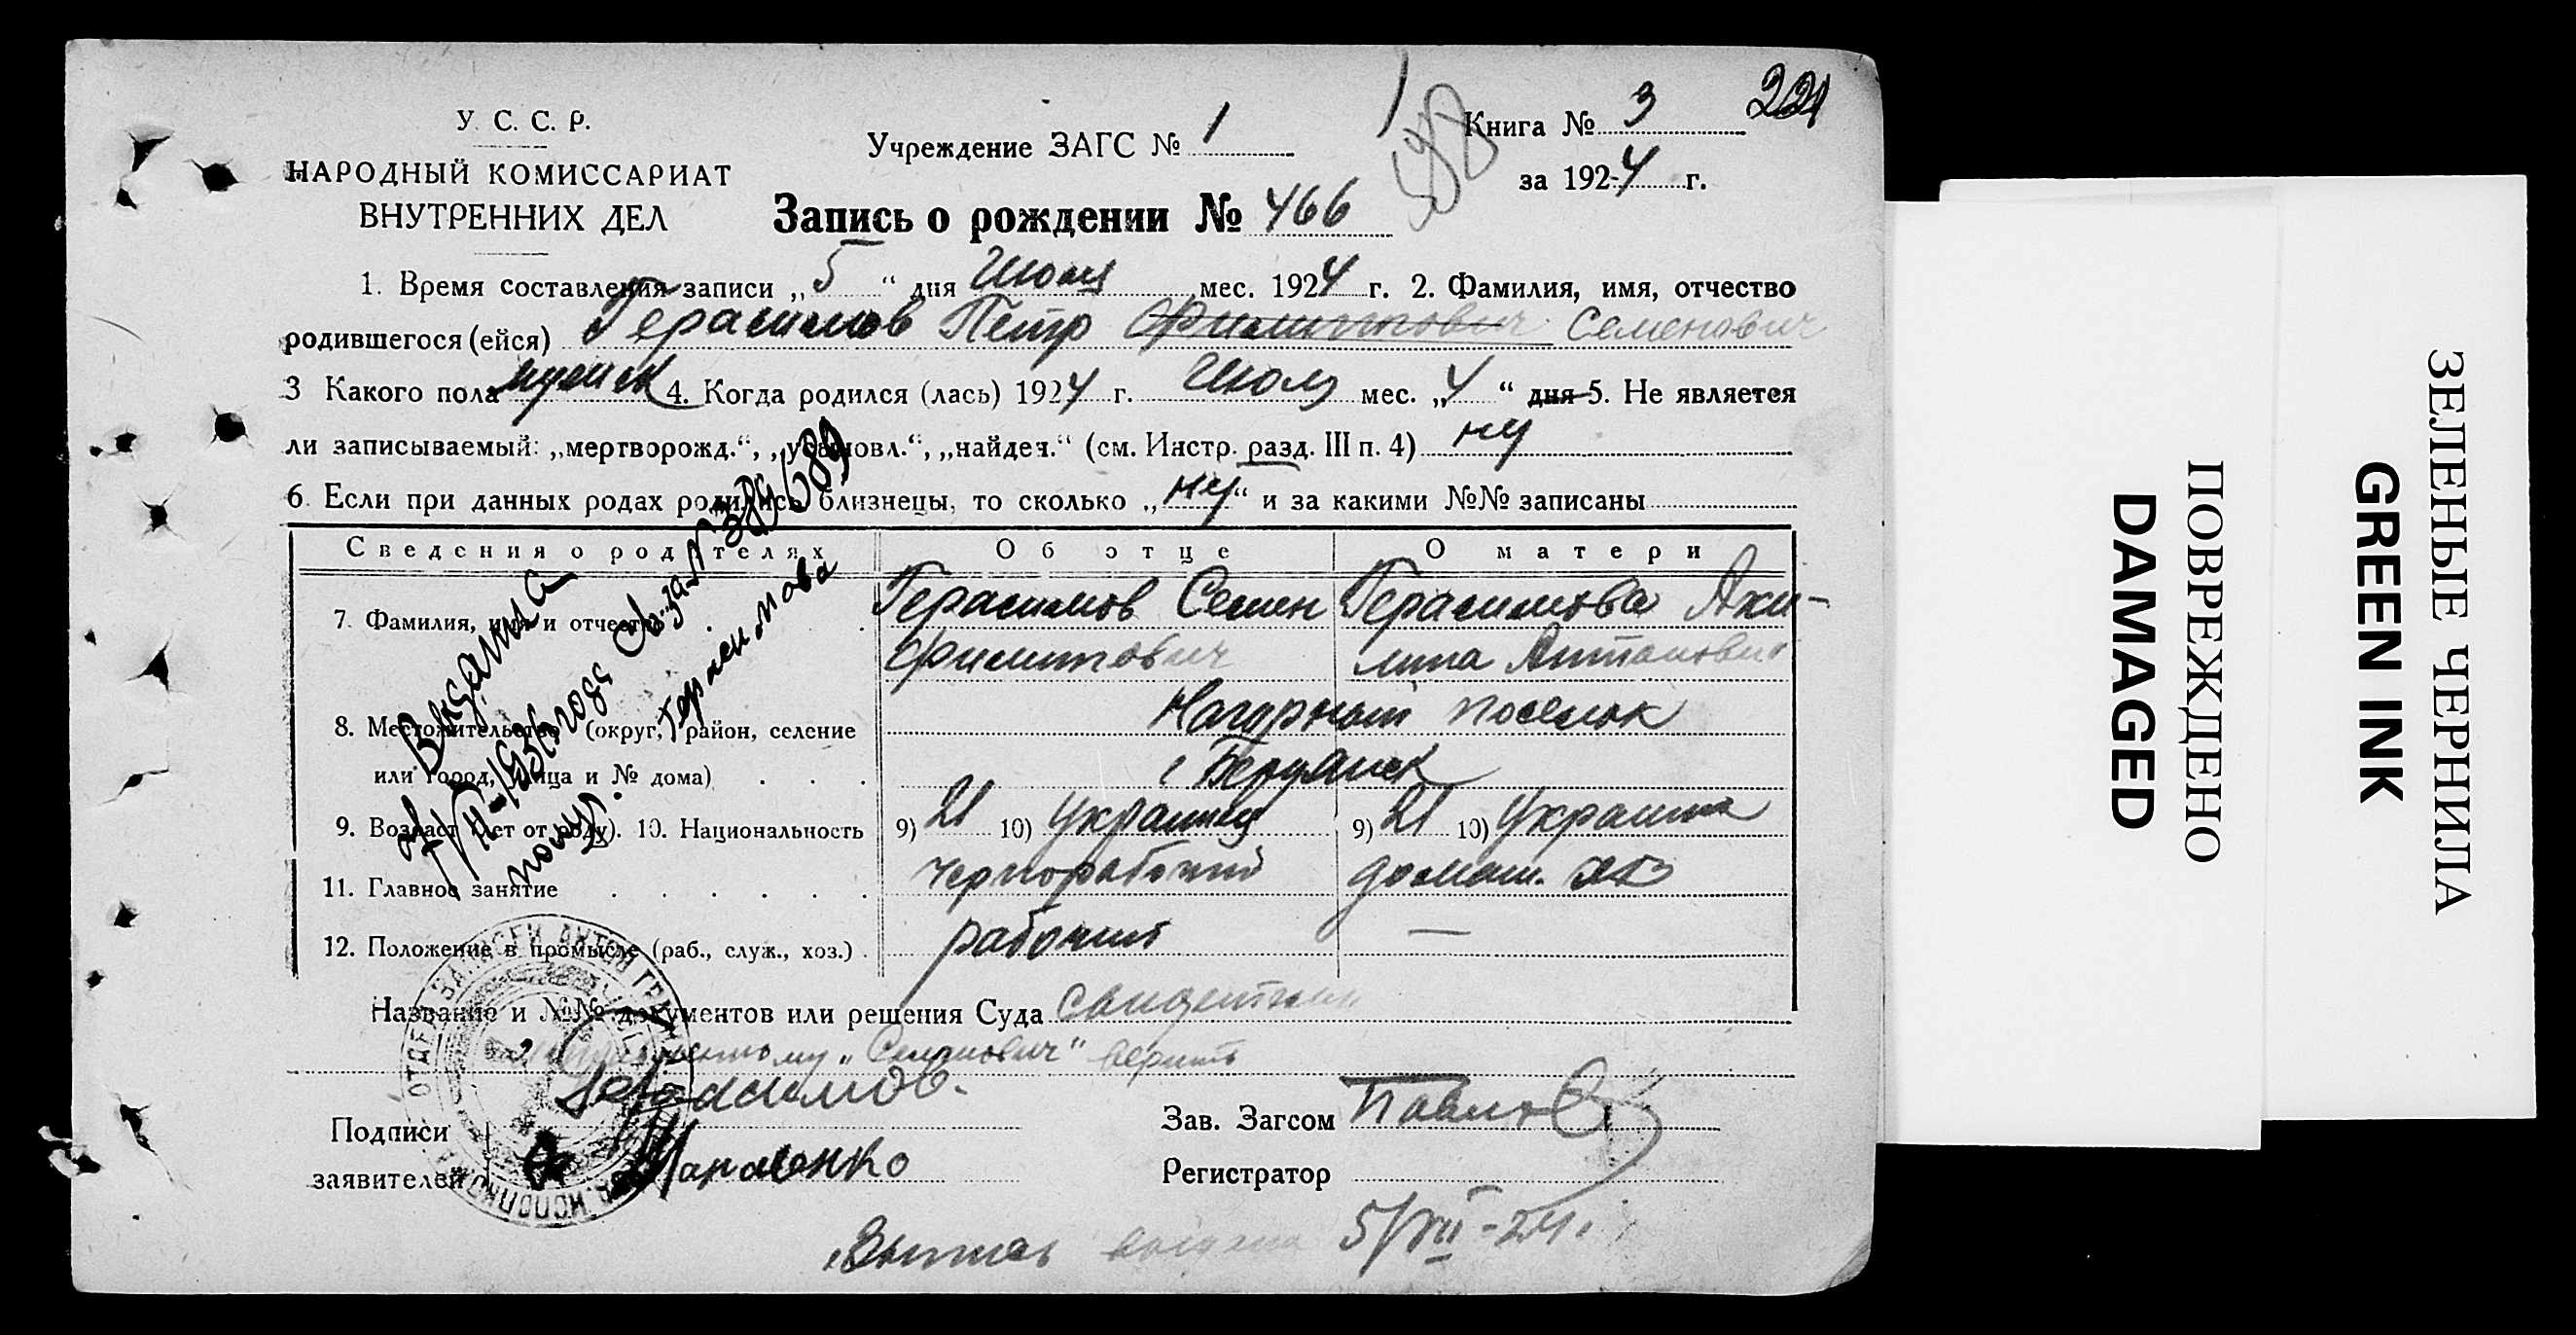 У. С. С. Р.
НАРОДНЫЙ КОМИССАРИАТ
ВНУТРЕННИХ ДЕЛ
Учреждение ЗАГС № 1
Книга № 3 221
за 1924 г.
Запись о рождении № 466
1. Время составления записи „5“ дня Июля мес. 1924 г. 2. Фамилия, имя, отчество
родившегося (ейся) Герасимов Петр Филиппович Семенович
3 Какого пола мужск 4. Когда родился (лась) 1924 г. Июля мес. „4“ дня 5. Не является
ли записываемый: „мертворожд.“, „усыновл.“, „найден.“ (см. Инстр. разд. III п. 4) нет
6. Если при данных родах родились близнецы, то сколько „нет“ и за какими №№ записаны
Сведения о родителях Об отце О матери
7. Фамилия, имя и отчество Герасимов Семен Герасимова Аку-
Филиппович лина Антоновна
8. Местожительство (округ, район, селение Нагорный поселок
или город, улица и № дома) г Бердянск
9. Возраст (лет от роду). 10. Национальность 9) 21 10) Украинец 9) 21 10) Украинка
11. Главное занятие чернорабочий домаш. хоз
12. Положение в промысле (раб., служ., хоз.) рабочий —
Название и №№ документов или решения Суда
„Семенович“ верить
Герасимов.
Подписи
заявителей Марченко
Зав. Загсом
Регистратор
Выпись выдана 5/VII-24г.
Выдана
1936 года
получ. Герасимова
ПОВРЕЖДЕНО
DAMAGED
ЗЕЛЕНЫЕ ЧЕРНИЛА
GREEN INK